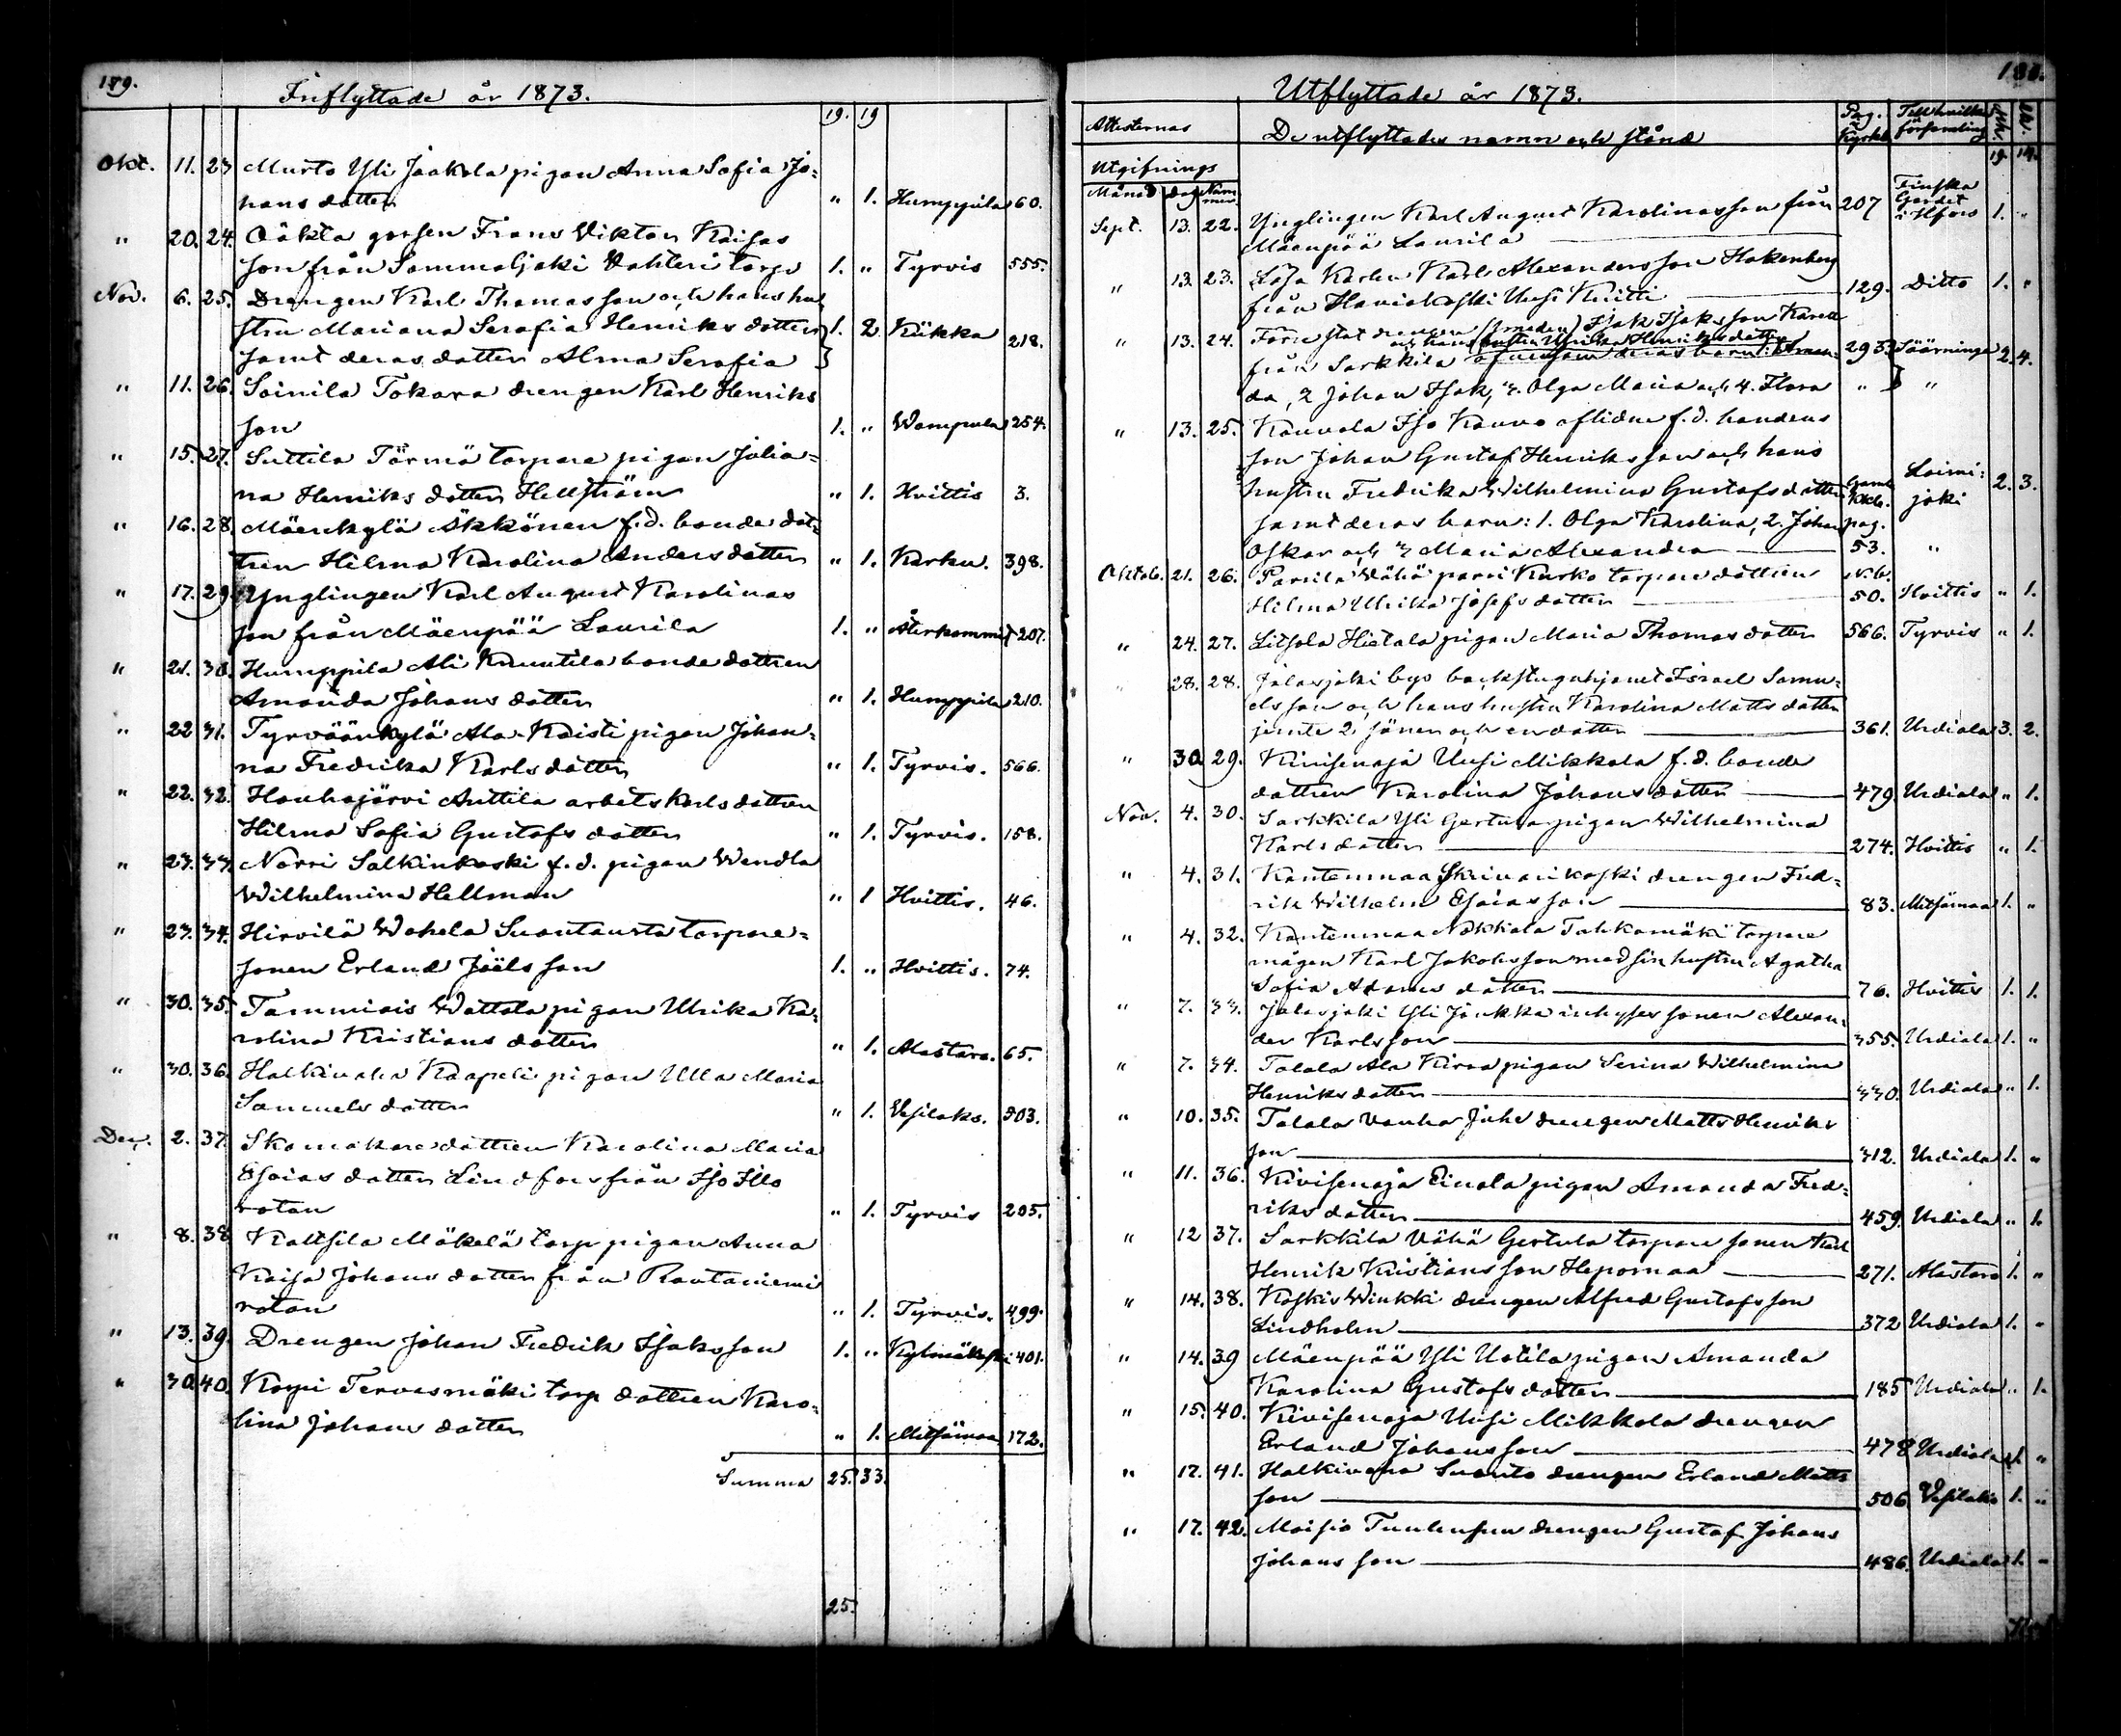 179.
Inflyttade år 1873.
19. 19
Okt. 11. 23 Murto Yli Jaakola pigan Anna Sofia Jo=
hans dotter " 1. Humppila 60.
" 20. 24. gossen Frans Viktor Kaisas
son från Sammaljoki Vahteri torp 1. " Tyrvis 555.
Nov. 6. 25. Drengen Karl Thomasson och hans hu
stru Mariana Serafia Henriks dotter 1. 2 Kiikka 218.
samt deras dotter Alma Serafia
" 11. 26. Soinila Tokara drengen Karl Henriks
son 1. " Wampula 254.
" 15. 27. Suttila Törmä torpare pigan Julia=
na Henriks dotter Hellström " 1. Hvittis 3.
" 16. 28. Mäenkylä Äkkönen f.d. bonde dot=
tren Hilma Karolina Anders dotter " 1. Karku. 398.
" 17. 29. Ynglingen Karl August Karolinas
son från Mäenpää Laurila 1. " Återkommit 207.
" 21. 30. Humppila Ali Knuutila bonde dottren
Amanda Johans dotter " 1. Humppila 210.
" 22. 31. Tyrväänkylä Ala-Kaisti pigan Johan=
na Fredrika Karls dotter " 1. Tyrvis. 566.
" 22. 32. Houhajärvi Anttila arbetskarls dottren
Hilma Sofia Gustafs dotter " 1. Tyrvis. 158.
" 23. 33. Norri Salkinkoski f.d. pigan Wendla
Wilhelmina Hellman " 1 Hvittis. 46.
" 23. 34. Hirvilä Wahela Suontausta torpare=
sonen Erland Joëls son 1. " Hvittis. 74.
" 30. 35. Tammiais Wattala pigan Ulrika Ka=
rolina Kristians dotter " 1. Alastaro. 65.
" 30. 36. Halkivaha Kaapeli pigan Ulla Maria
Samuels dotter " 1. Vesilaks. 503.
Dec. 2. 37. Skomakare dottren Karolina Maria
Esaias dotter Lindfors från Iso Illo
rotan " 1. Tyrvis 205.
" 8. 38 Kaltsila Mäkelä torp pigan Anna
Kaisa Johans dotter från Rautaniemi
rotan " 1. Tyrvis. 499.
" 13. 39. Drengen Johan Fredrik Isaksson 1. " Kylmäkoski 401.
" 30. 40. Korpi Tervasmäki torp dottren Karo=
lina Johans dotter " 1. Mitsämaa 172.
Summa 25. 33.
25.
Utflyttade år 1873.
Attesternas De utflyttades namn och stånd Pag. i Kyrkb. Till hvilken församling Mk. Qk.
Utgifnings 19. 19.
Månad dag Num mer.
Sept. 13. 22. Ynglingen Karl August Karolinasson från 207 Finska Gardet i H:fors 1. "
Mäenpää Laurila
" 13. 23. Lösa Karlen Karl Alexandersson Hakenberg
från Haviokoski Uusi Knitti 129. Ditto 1. "
" 13. 24. Förre stat drengen (smeden) Isak Isaksson
och hans hustru Ulrika Henriksdotter
från Sarkkila deras barn: 1. Aman= 293. Säärninge 2. 4.
da, 2 Johan Isak, 3. Olga Maria och 4. Flora " "
" 13. 25. Kauvola Iso Kauvo aflidne f.d. bondens
son Johan Gustaf Henriksson och hans
hustru Fredrika Wilhelmina Gustafs dotter Gamla Kkb. Loimi= joki 2. 3.
samt deras barn: 1. Olga Karolina, 2. Johan pag.
Oskar och 3 Maria Alexandra 53. "
Oktob. 21. 26. Parsila Vähä parri Kurko torpare dottren n.b.
Hilma Ulrika Josefs dotter 50. Hvittis " 1.
" 24. 27. Litsola Hietala pigan Maria Thomas dotter 566. Tyrvis " 1.
" 28. 28. Jalasjoki bys backstuguhjonet Israel Samu=
elsson och hans hustru Karolina Matts dotter
jemte 2 söner och en dotter 361. Urdiala 3. 2.
" 30. 29. Kivisenoja Uusi Mikkola f.d. bonde
dottren Karolina Johans dotter 479. Urdiala " 1.
Nov. 4. 30. Sarkkila Yli Gertula pigan Wilhelmina
Karls dotter 274. Hvittis " 1.
" 4. 31. Kantenmaa Skrivarikoski drengen Fred=
rik Wilhelm Esaiasson 83. Mitsämaa 1. "
" 4. 32. Kantenmaa Nokkala Tahkomäki torpare
mågen Karl Jakobsson med sin hustru Agatha
Sofia Adams dotter 76. Hvittis 1. 1.
" 7. 33. Jalasjoki Yli Jaukka inhyses sonen Alexan=
der Karlsson 355. Urdiala 1. "
" 7. 34. Talala Ala Kirra pigan Serina Wilhelmina
Henriks dotter 330. Urdiala " 1.
" 10. 35. Talala Vanha Juhs drengen Matts Henriks
son 312. Urdiala 1. "
" 11. 36. Kivisenoja Einola pigan Amanda Fred=
riks dotter 459. Urdiala " 1.
" 12 37. Sarkkila Vähä Gertula torpare sonen Karl
Henrik Kristiansson Hepomaa 271. Alastaro 1. "
" 14. 38. Koskis Winkki drengen Alfred Gustafsson
Lindholm 372 Urdiala 1. "
" 14. 39 Mäenpää Yli Uotila pigan Amanda
Karolina Gustafs dotter 185 Urdiala " 1.
" 15. 40. Kivisenoja Uusi Mikkola drengen
Erland Johansson 478 Urdiala 1. "
" 17. 41. Halkivaha Suonto drengen Erland Matts
son 506 Vesilaks 1. "
" 17. 42. Moisio Tuulensuu drengen Gustaf Johans
Johans son 486. Urdiala 1. "